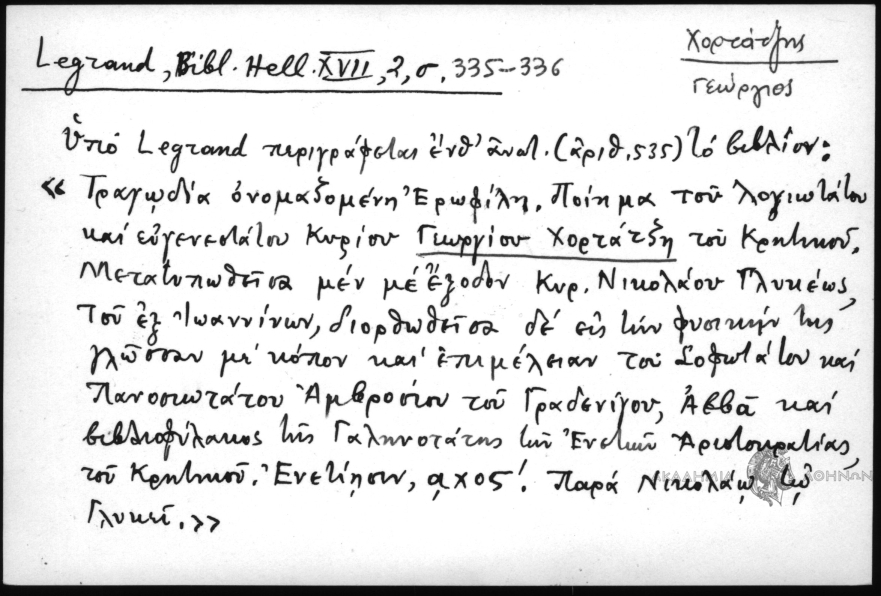 Χορτάτζης
Γεώργιος
Legrand, Bibl. Hell. XVII, 2, σ. 335-336
Ὑπό Legrand περιγράφεται ἐνθ' ἀνωτ. (ἀριθ. 535) τό βιβλίον:
«Τραγῳδία ὀνομαζομένη Ἐρωφίλη. Ποίημα τοῦ λογιωτάτου
καί εὐγενεστάτου Κυρίου Γεωργίου Χορτάτζη τοῦ Κρητικοῦ.
Μετατυπωθεῖσα μέν μέ ἔξοδον Κυρ. Νικολάου Γλυκέως,
τοῦ ἐξ Ἰωαννίνων, διορθωθεῖσα δέ εἰς τήν φυσικήν της
γλῶσσαν μέ κόπον καί ἐπιμέλειαν τοῦ Σοφωτάτου καί
Πανοσιωτάτου Ἀμβροσίου τοῦ Γραδενίγου, Ἀββᾶ καί
βιβλιοφύλακος τῆς Γαληνοτάτης τῶν Ἐνετῶν Ἀριστοκρατίας,
τοῦ Κρητικοῦ. Ἐνετίῃσιν, αχος'. Παρά Νικολάῳ τῷ
Γλυκεῖ.»
ΑΚΑΔΗΜΙΑ ΑΘΗΝΩΝ